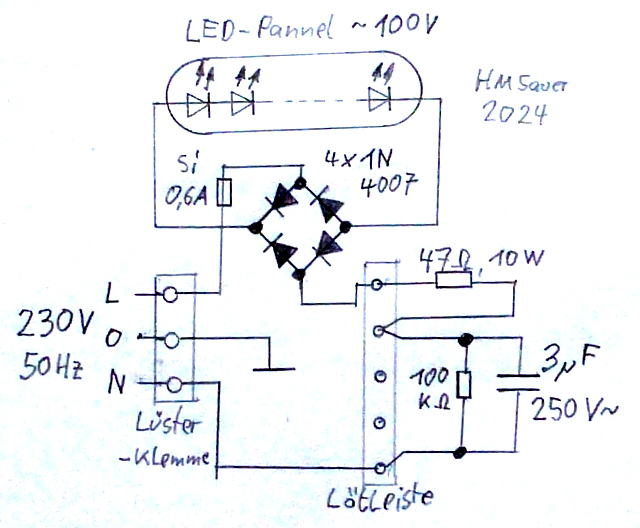 LED-Pannel ~100V
HMSauer
2024
Si
0,6A
4x1N
4007
47Ω, 10W
L
230V
O
50Hz
N
100
KΩ
3µF
250V~
Lüster
-Klemme
Lötleiste